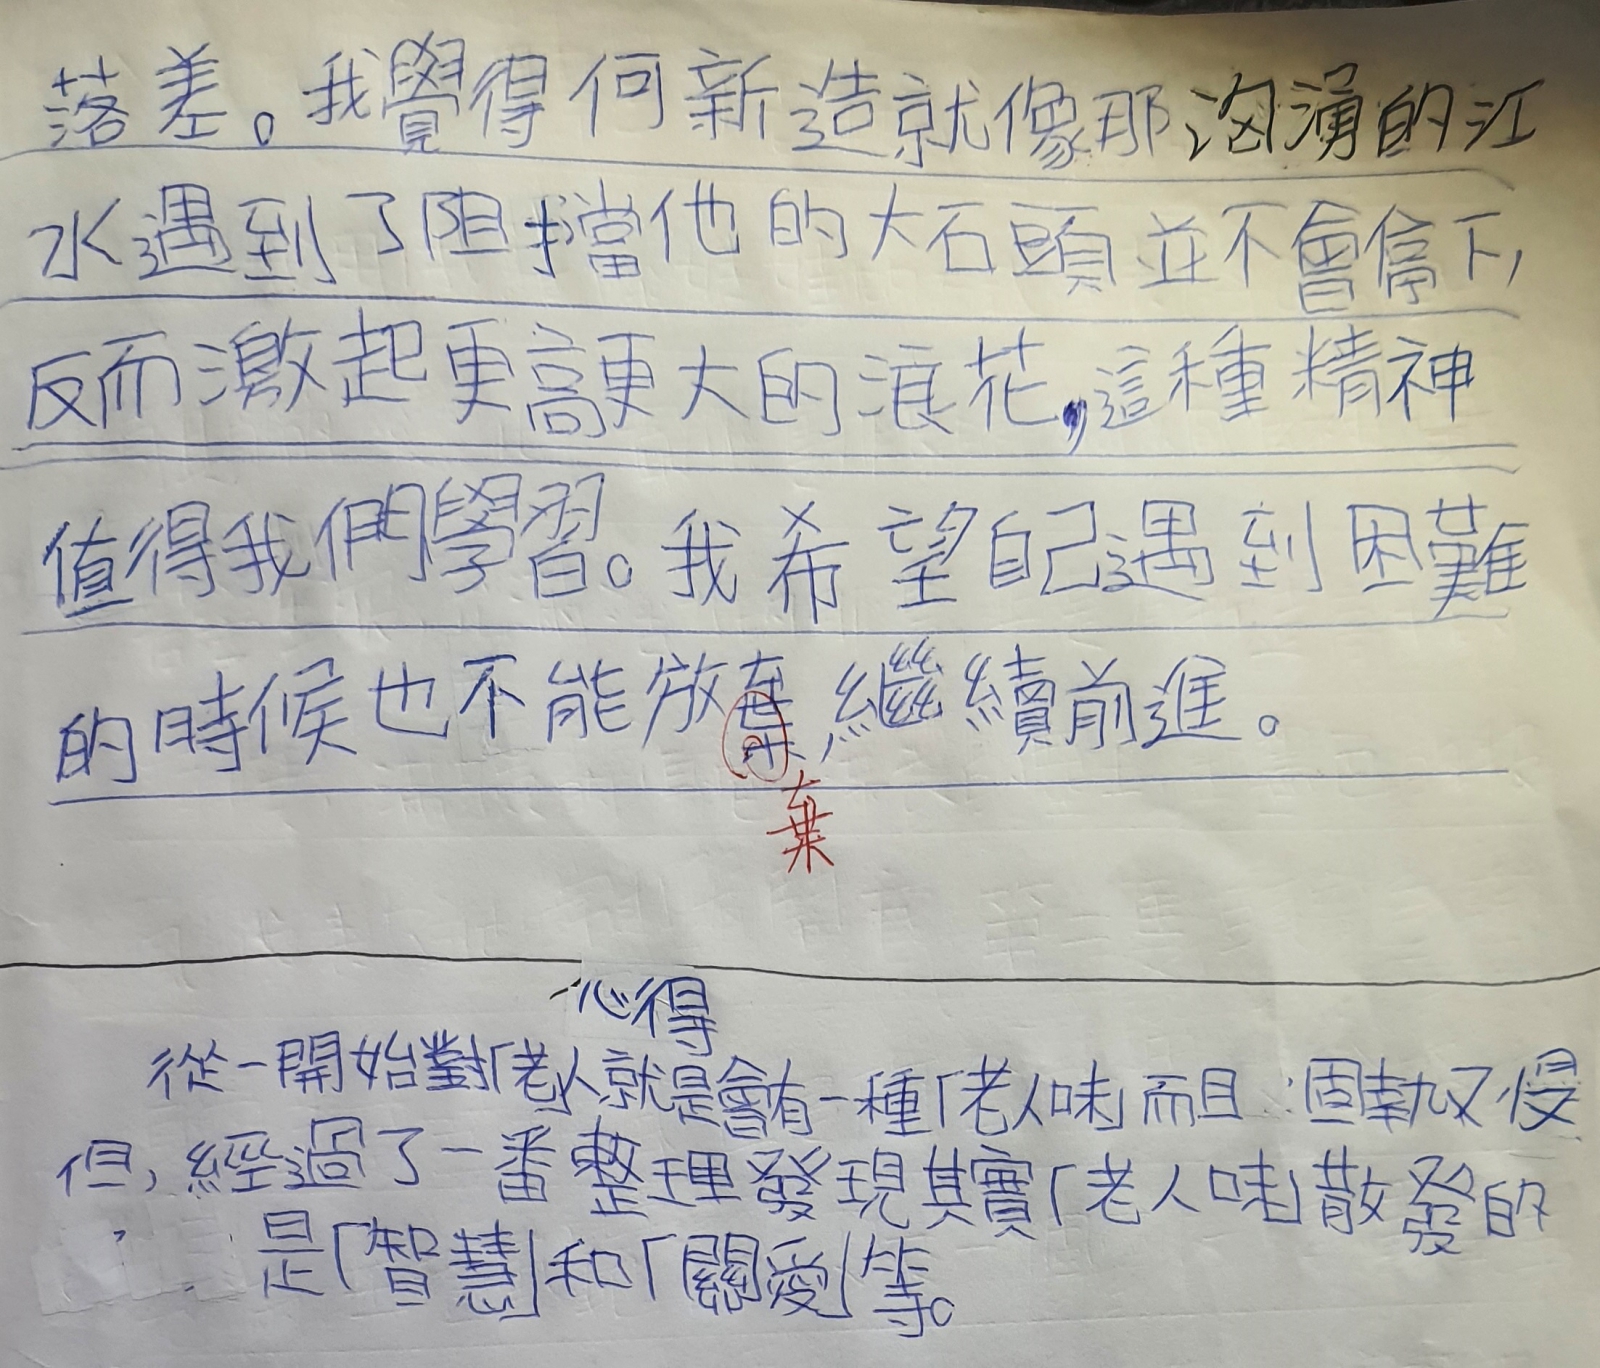 落差。我覺得何新造就像那洶湧的江
水遇到了阻擋他的大石頭並不會停下,
反而激起更高更大的浪花,這種精神
值得我們學習。我希望自己遇到困難
的時候也不能放棄,繼續前進。
棄
心得
從一開始對「老人就是會有一種「老人味」而且固執又慢
但,經過了一番整理發現其實「老人味」散發的
是「智慧」和「關愛」等。